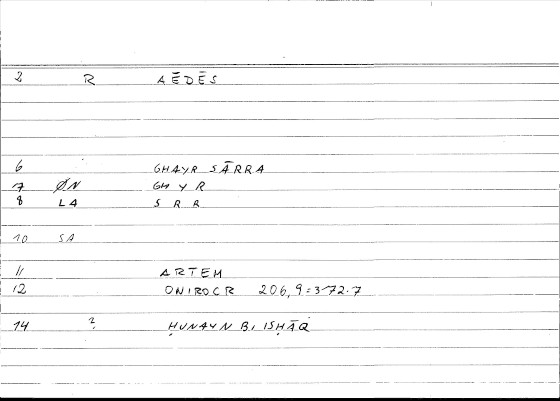 2 R AĒDĒS
6 GHAYR SĀRRA
7 ØN GHYR
8 LA SRR
10 SA
11 ARTEM
12 ONIROCR 206,9=372.7
14 ? ḤUNAYN B. ISḤĀQ